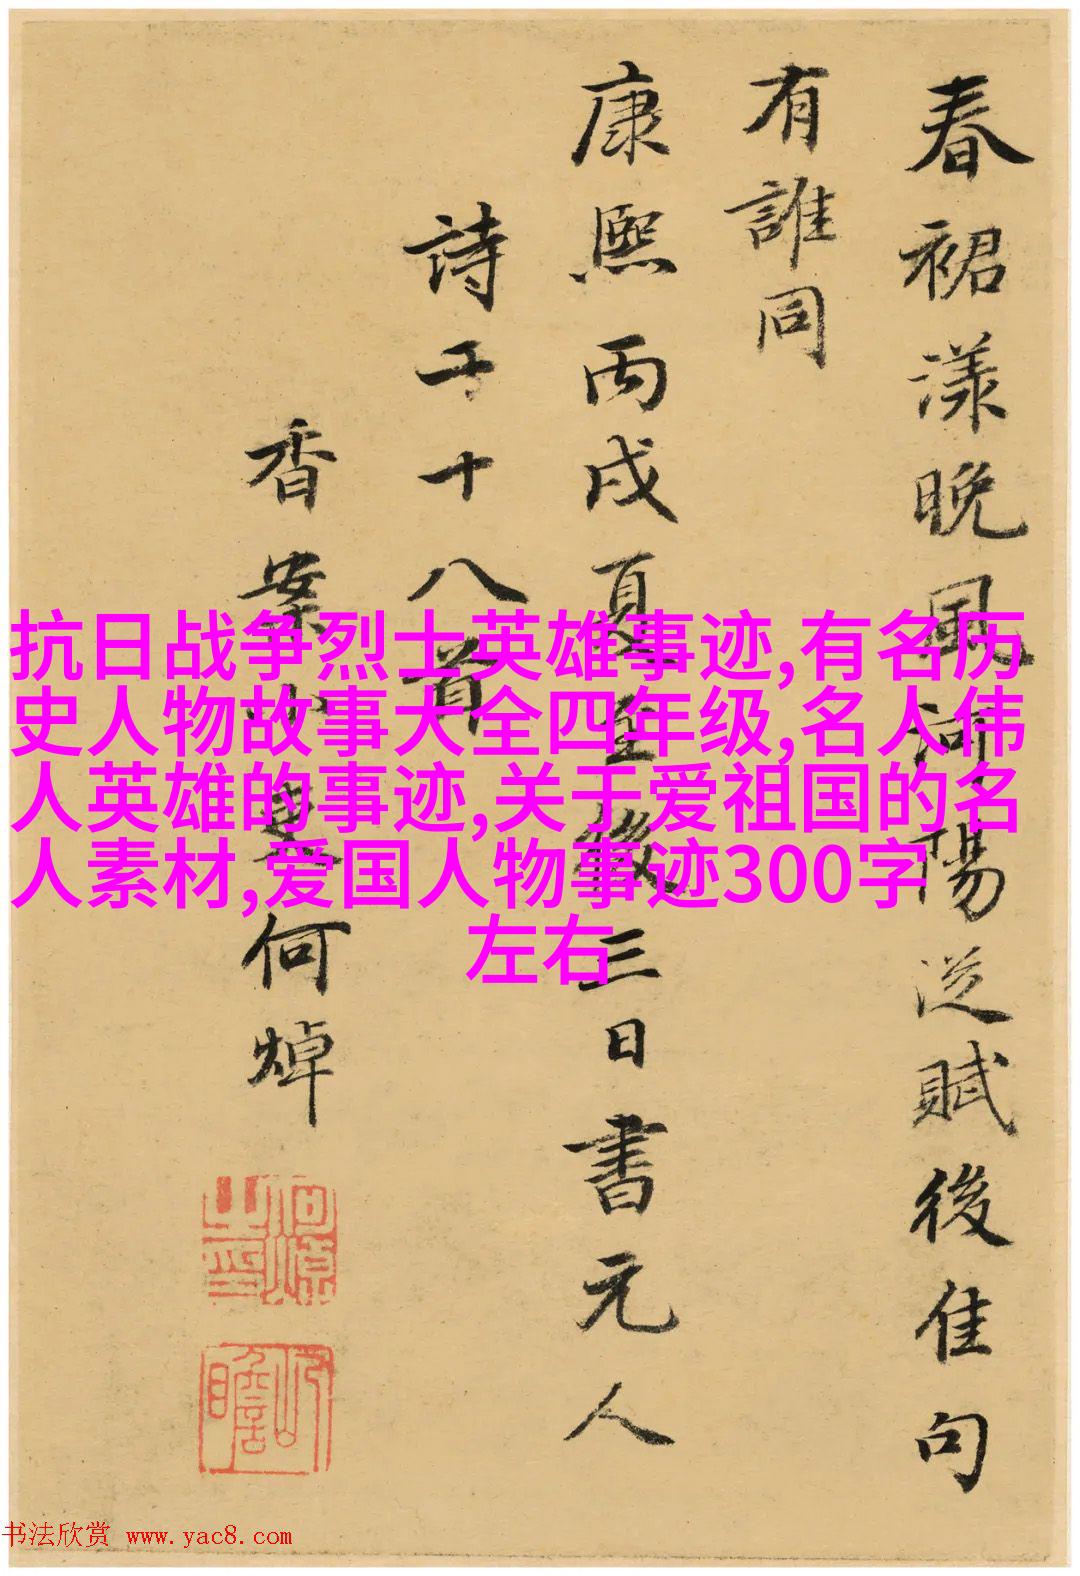 春裙漾晚風河陽從賦後佳句
有誰同
康熙丙戌夏至後三日書元人
詩十八首
香案小吏何焯
何焯之印
屺瞻
抗日战争烈士英雄事迹,有名历
史人物故事大全四年级,名人伟
人英雄的事迹,关于爱祖国的名
人素材,爱国人物事迹300字
左右
书法欣赏 www.yac8.com